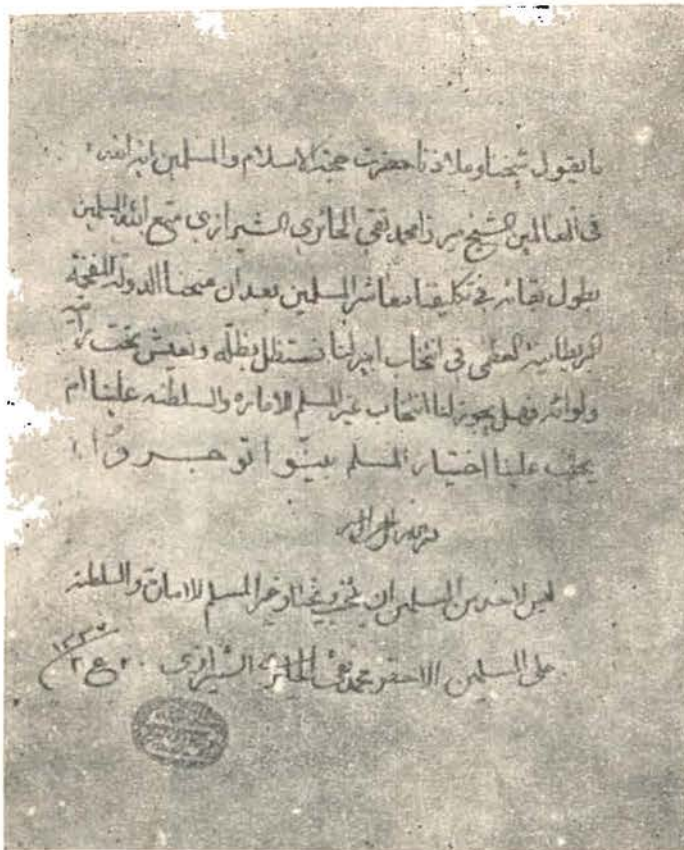 ما يقول شيخنا وملاذنا حضرت حجة الاسلام والمسلمين اية الله
في العالمين الشيخ ميرزا محمد تقي الحائري الشيرازي متع الله المسلمين
بطول بقائه في تكليفنا معاشر المسلمين بعد ان منحتنا الدولة المفخمة
البريطانية العظمى في انتخاب امير لنا نستظل بظله ونعيش تحت رايته
ولوائه فهل يجوز لنا انتخاب غير المسلم للامارة والسلطنه علينا ام
يجب علينا اختيار المسلم بينوا تو جروا
ليس لاحد من المسلمين ان ينتخب ويختار غير المسلم للامارة والسلطنه
على المسلمين الاحقر محمد تقي الحائري الشيرازي ٢٠ ع ٢ ١٣٣٧